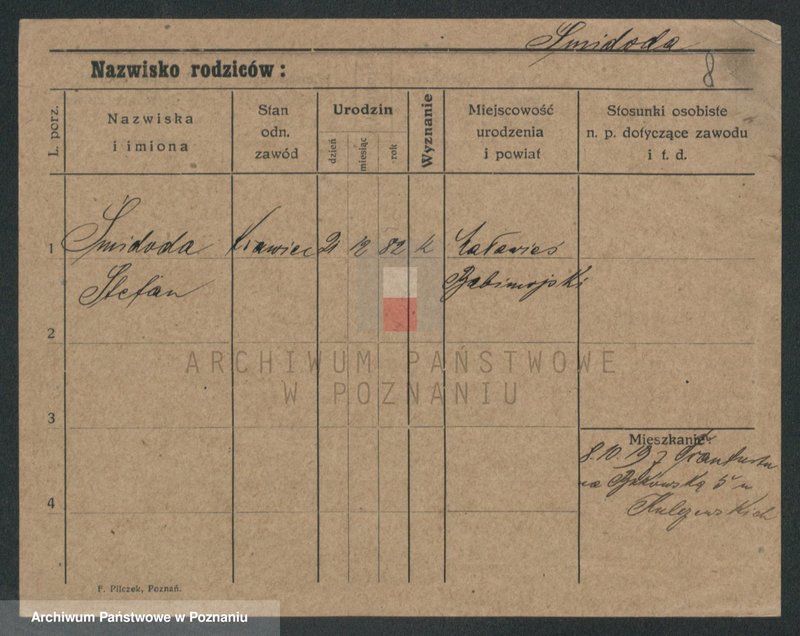 Smidoda
8
Nazwisko rodziców:
L. porz.
Nazwiska
i imiona
Stan
odn.
zawód
Urodzin
dzień
miesiąc
rok
Wyznanie
Miejscowość
urodzenia
i powiat
Stosunki osobiste
n. p. dotyczące zawodu
i t. d.
1
Smidoda
Stefan
Krawiec
21
12
82
k
Babimojski
2
ARCHIWUM PAŃSTWOWE
W POZNANIU
3
Mieszkanie:
8.10.19 z
na Bukowską 5 u
4
F. Pilczek, Poznań.
Archiwum Państwowe w Poznaniu